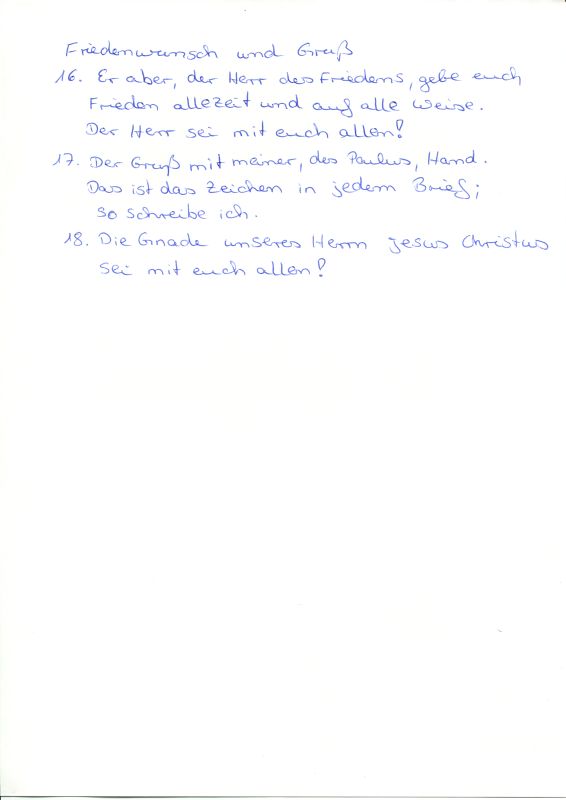 Friedenwunsch und Gruß
16. Er aber, der Herr des Friedens, gebe euch
Frieden allezeit und auf alle Weise.
Der Herr sei mit euch allen!
17. Der Gruß mit meiner, des Paulus, Hand.
Das ist das Zeichen in jedem Brief;
so schreibe ich.
18. Die Gnade unseres Herrn Jesus Christus
sei mit euch allen!